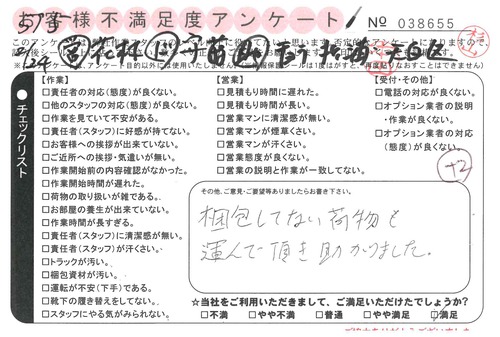 お客様不満足度アンケート
No 038655
チェックリスト
【作業】
□責任者の対応(態度)が良くない。
□他のスタッフの対応(態度)が良くない。
□作業を見ていて不安がある。
□責任者(スタッフ)に好感が持てない。
□お客様への挨拶が出来ていない。
□ご近所への挨拶・気遣いが無い。
□作業開始前の内容確認がなかった。
□作業開始時間が遅れた。
□荷物の取り扱いが雑である。
□お部屋の養生が出来ていない。
□作業時間が長すぎる。
□責任者(スタッフ)に清潔感が無い。
□責任者(スタッフ)が汗くさい。
□トラックが汚い。
□梱包資材が汚い。
□運転が不安(下手)である。
□靴下の履き替えをしてない。
□スタッフにやる気がみられない。
【営業】
□見積もり時間に遅れた。
□見積もり時間が長い。
□営業マンに清潔感が無い。
□営業マンが煙草くさい。
□営業マンが汗くさい。
□営業態度が良くない。
□営業の説明と作業が一致してない。
【受付・その他】
□電話の対応が良くない。
□オプション業者の説明
・作業が良くない。
□オプション業者の対応
(態度)が良くない。
+2
その他、ご意見・ご要望等ありましたらお書き下さい。
梱包してない荷物も
運んで頂き助かりました。
☆当社をご利用いただきまして、ご満足いただけたでしょうか?
□不満 □やや不満 □普通 □やや満足 □満足